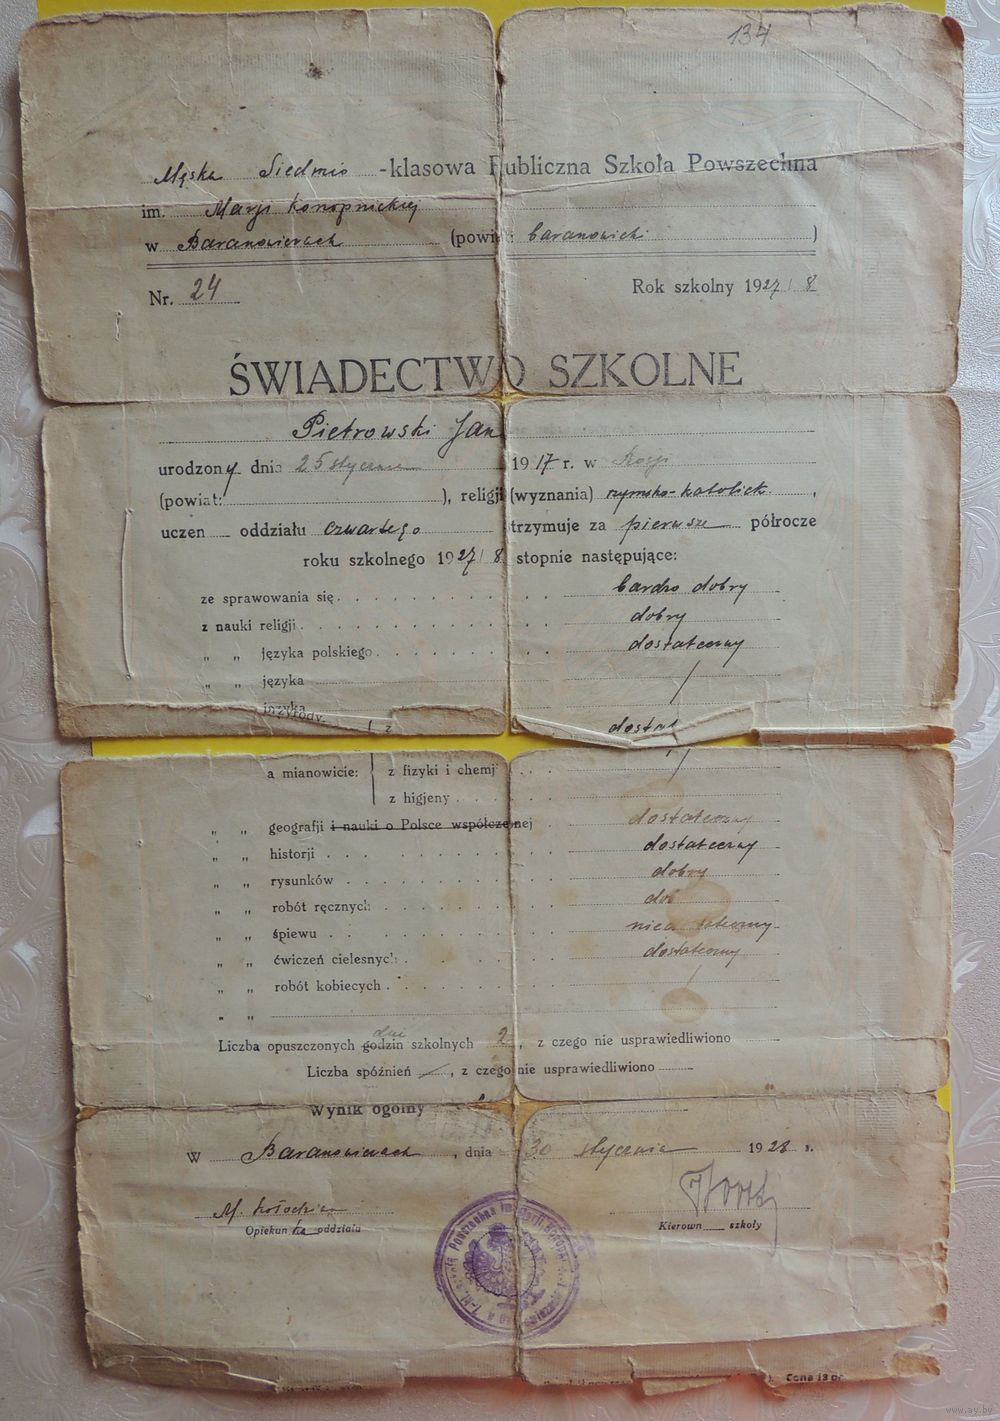 134
Męska Siedmio -klasowa Publiczna Szkoła Powszechna
im. Marji Konopnickiej
w Baranowiczach (powiat: baranowicki)
Nr. 24 Rok szkolny 1927/8
ŚWIADECTWO SZKOLNE
Pietrowski Jan
urodzony dnia 25 stycznia 1917 r. w Rosji
(powiat: ), religji (wyznania) rzymsko-katolick.,
uczen oddziału czwartego trzymuje za pierwsze półrocze
roku szkolnego 1927/8 stopnie następujące:
ze sprawowania się. bardzo dobry
z nauki religji. dobry
„ „ języka polskiego. dostateczny
„ „ języka /
języka
przyrody. z dostat
a mianowicie: z fizyki i chemj /
z higjeny
„ „ geografji i nauki o Polsce współczesnej dostateczny
„ „ historji dostateczny
„ „ rysunków dobry
„ „ robót ręcznych dob
„ „ śpiewu niedostateczny
„ „ ćwiczeń cielesnych dostateczny
„ „ robót kobiecych /
„ „
dni
Liczba opuszczonych godzin szkolnych 2, z czego nie usprawiedliwiono
Liczba spóźnień —, z czego nie usprawiedliwiono
Wynik ogólny
W Baranowiczach, dnia 30 stycznia 1928 r.
M. Kołodzie
Opiekun ka oddziału Kierown szkoły
Powszechna im. Marji
Cena 13 gr.
www.ay.by